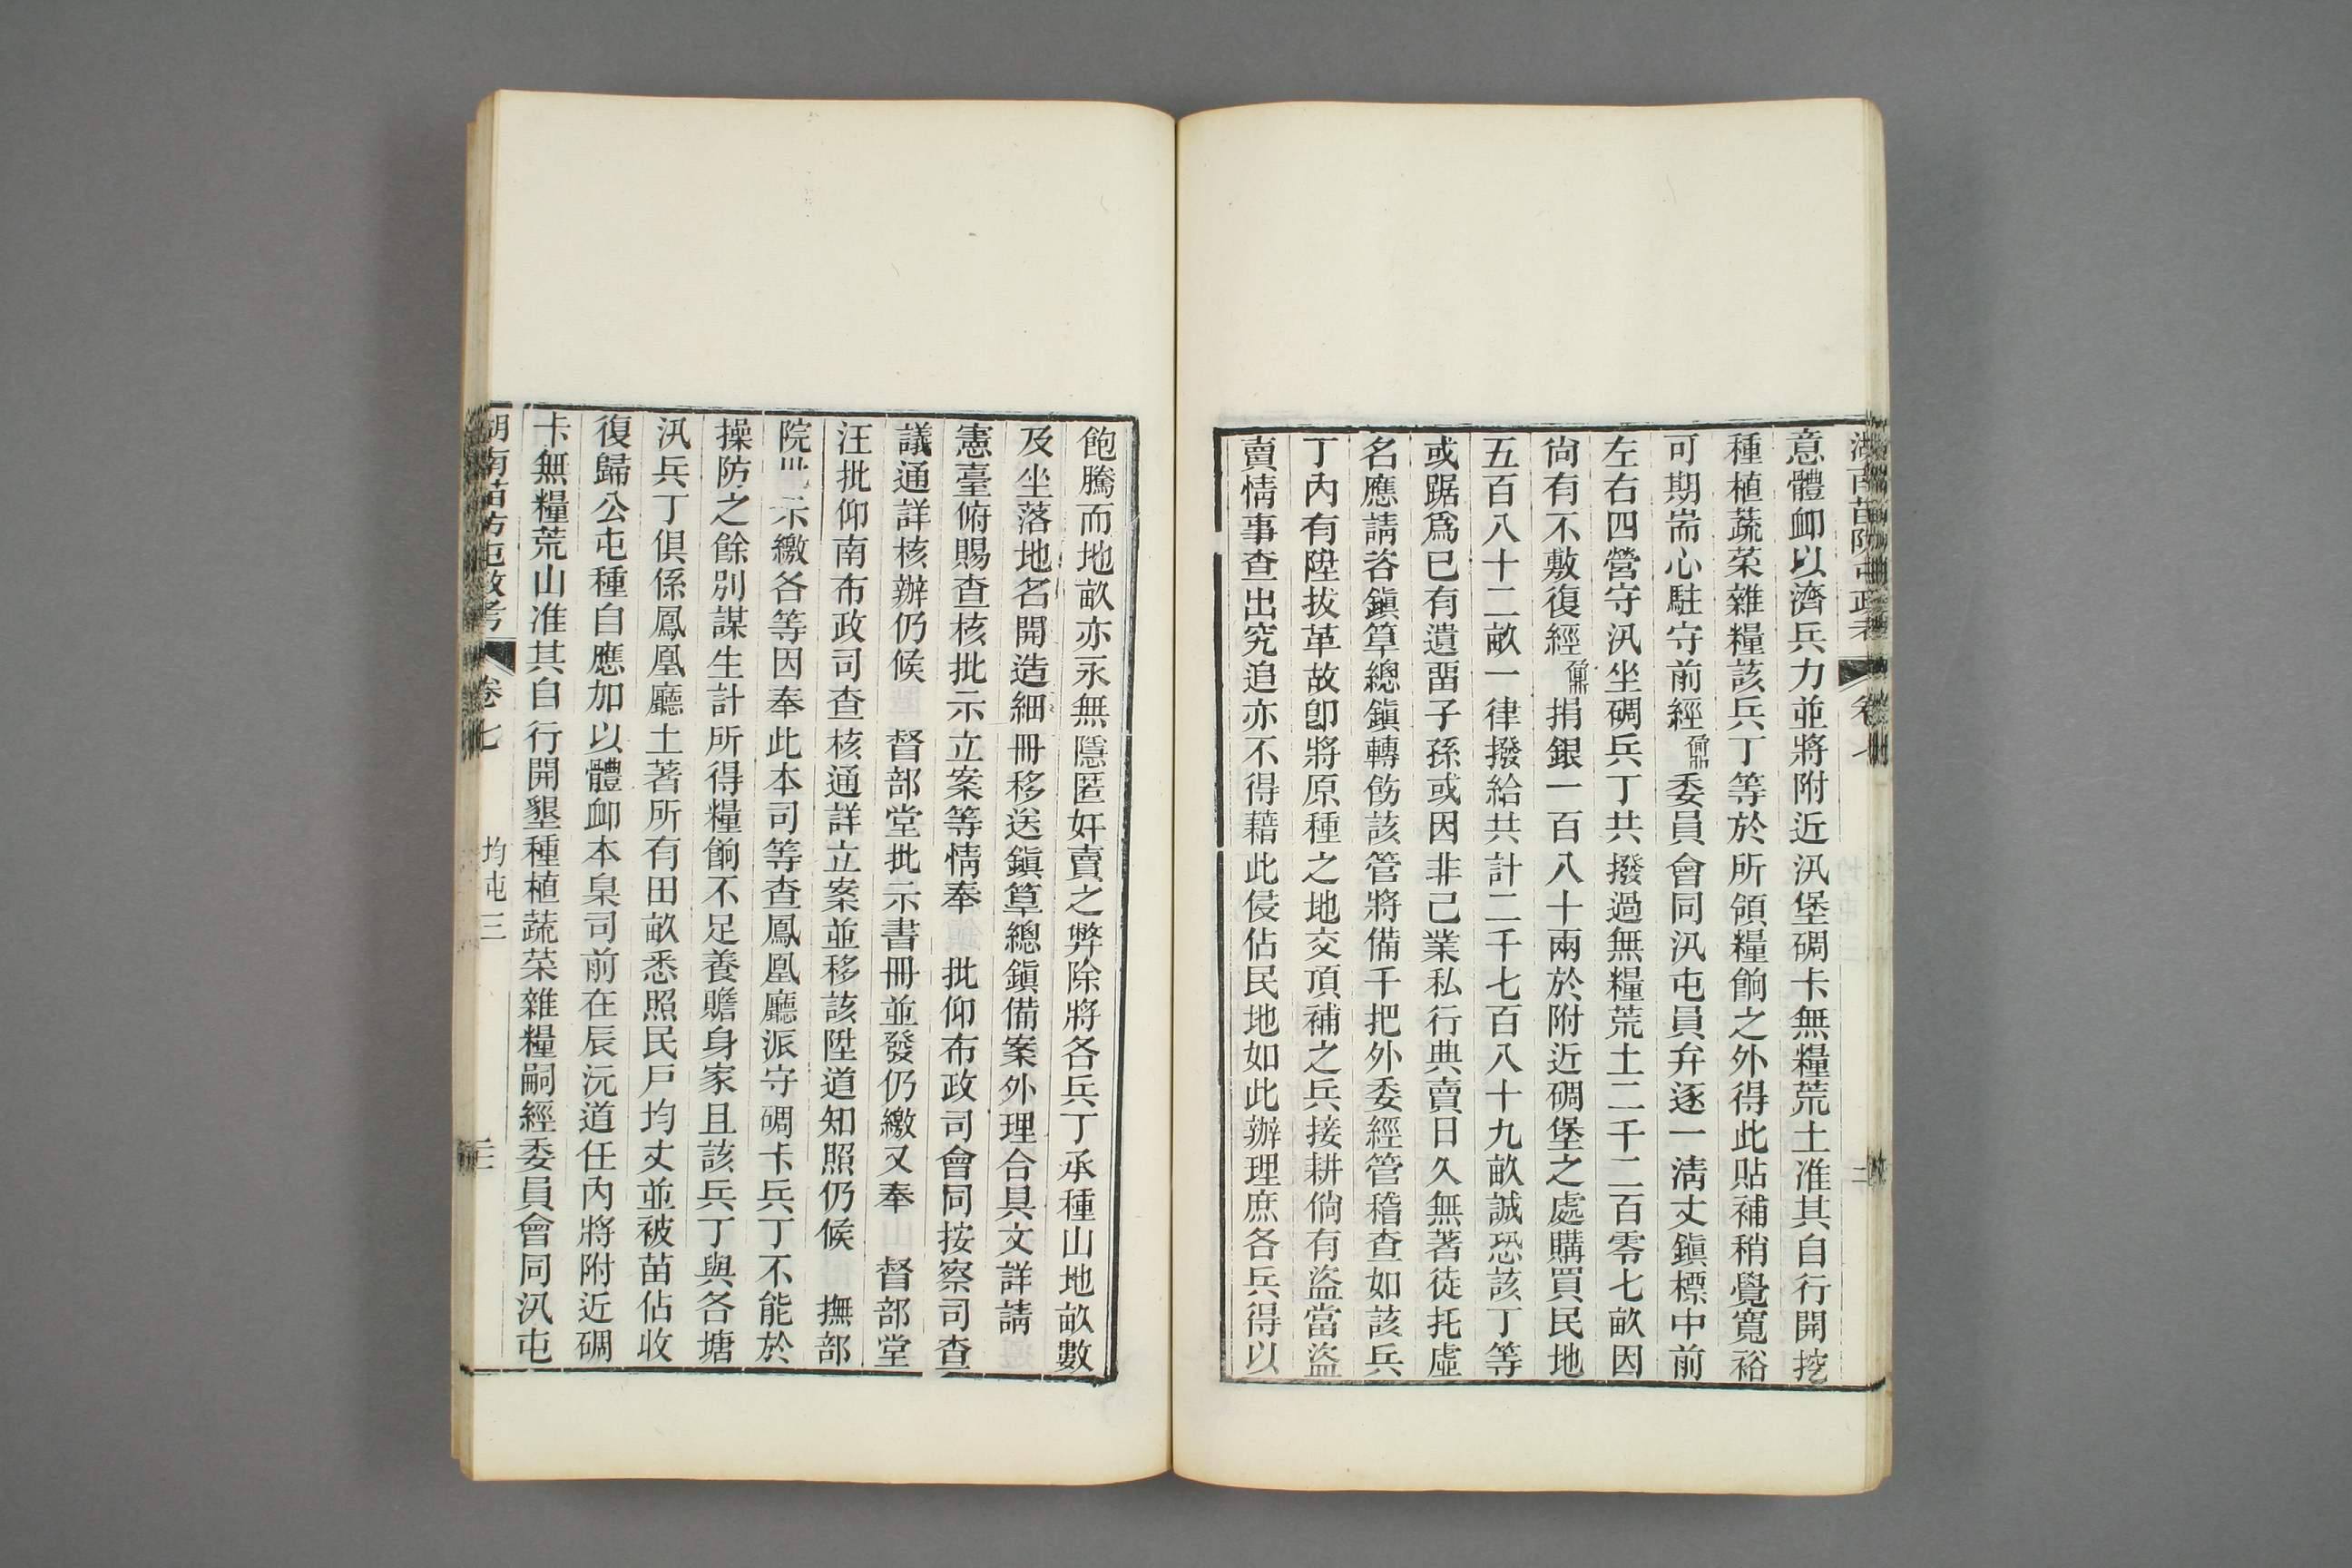 意體卹以濟兵力並將附近汛堡碉卡無糧荒土准其自行開挖
種植蔬菜雜糧該兵丁等於所領糧餉之外得此貼補稍覺寬裕
可期耑心駐守前經 委員會同汛屯員弁逐一淸丈鎭標中前
左右四營守汛坐碉兵丁共撥過無糧荒土二千二百零七畝因
尙有不敷復經 捐銀一百八十兩於附近碉堡之處購買民地
五百八十二畝一律撥給共計二千七百八十九畝誠恐該丁等
或踞爲已有遺畱子孫或因非己業私行典賣日久無著徒托虛
名應請咨鎭筸總鎭轉飭該管將備千把外委經管稽查如該兵
丁內有陞拔革故卽將原種之地交頂補之兵接耕倘有盜當盜
賣情事查出究追亦不得藉此侵佔民地如此辦理庶各兵得以
飽騰而地畝亦永無隱匿奸賣之弊除將各兵丁承種山地畝數
及坐落地名開造細冊移送鎭筸總鎭備案外理合具文詳請
憲臺俯賜查核批示立案等情奉 批仰布政司會同按察司查
議通詳核辦仍候 督部堂批示書冊並發仍繳又奉 督部堂
汪批仰南布政司查核通詳立案並移該陞道知照仍候 撫部
院批示繳各等因奉此本司等查鳳凰廳派守碉卡兵丁不能於
操防之餘別謀生計所得糧餉不足養贍身家且該兵丁與各塘
汛兵丁俱係鳳凰廳土著所有田畝悉照民戶均丈並被苗佔收
復歸公屯種自應加以體卹本臬司前在辰沅道任內將附近碉
卡無糧荒山准其自行開墾種植蔬菜雜糧嗣經委員會同汛屯
湖南苗防屯政考 卷七 均屯三 三